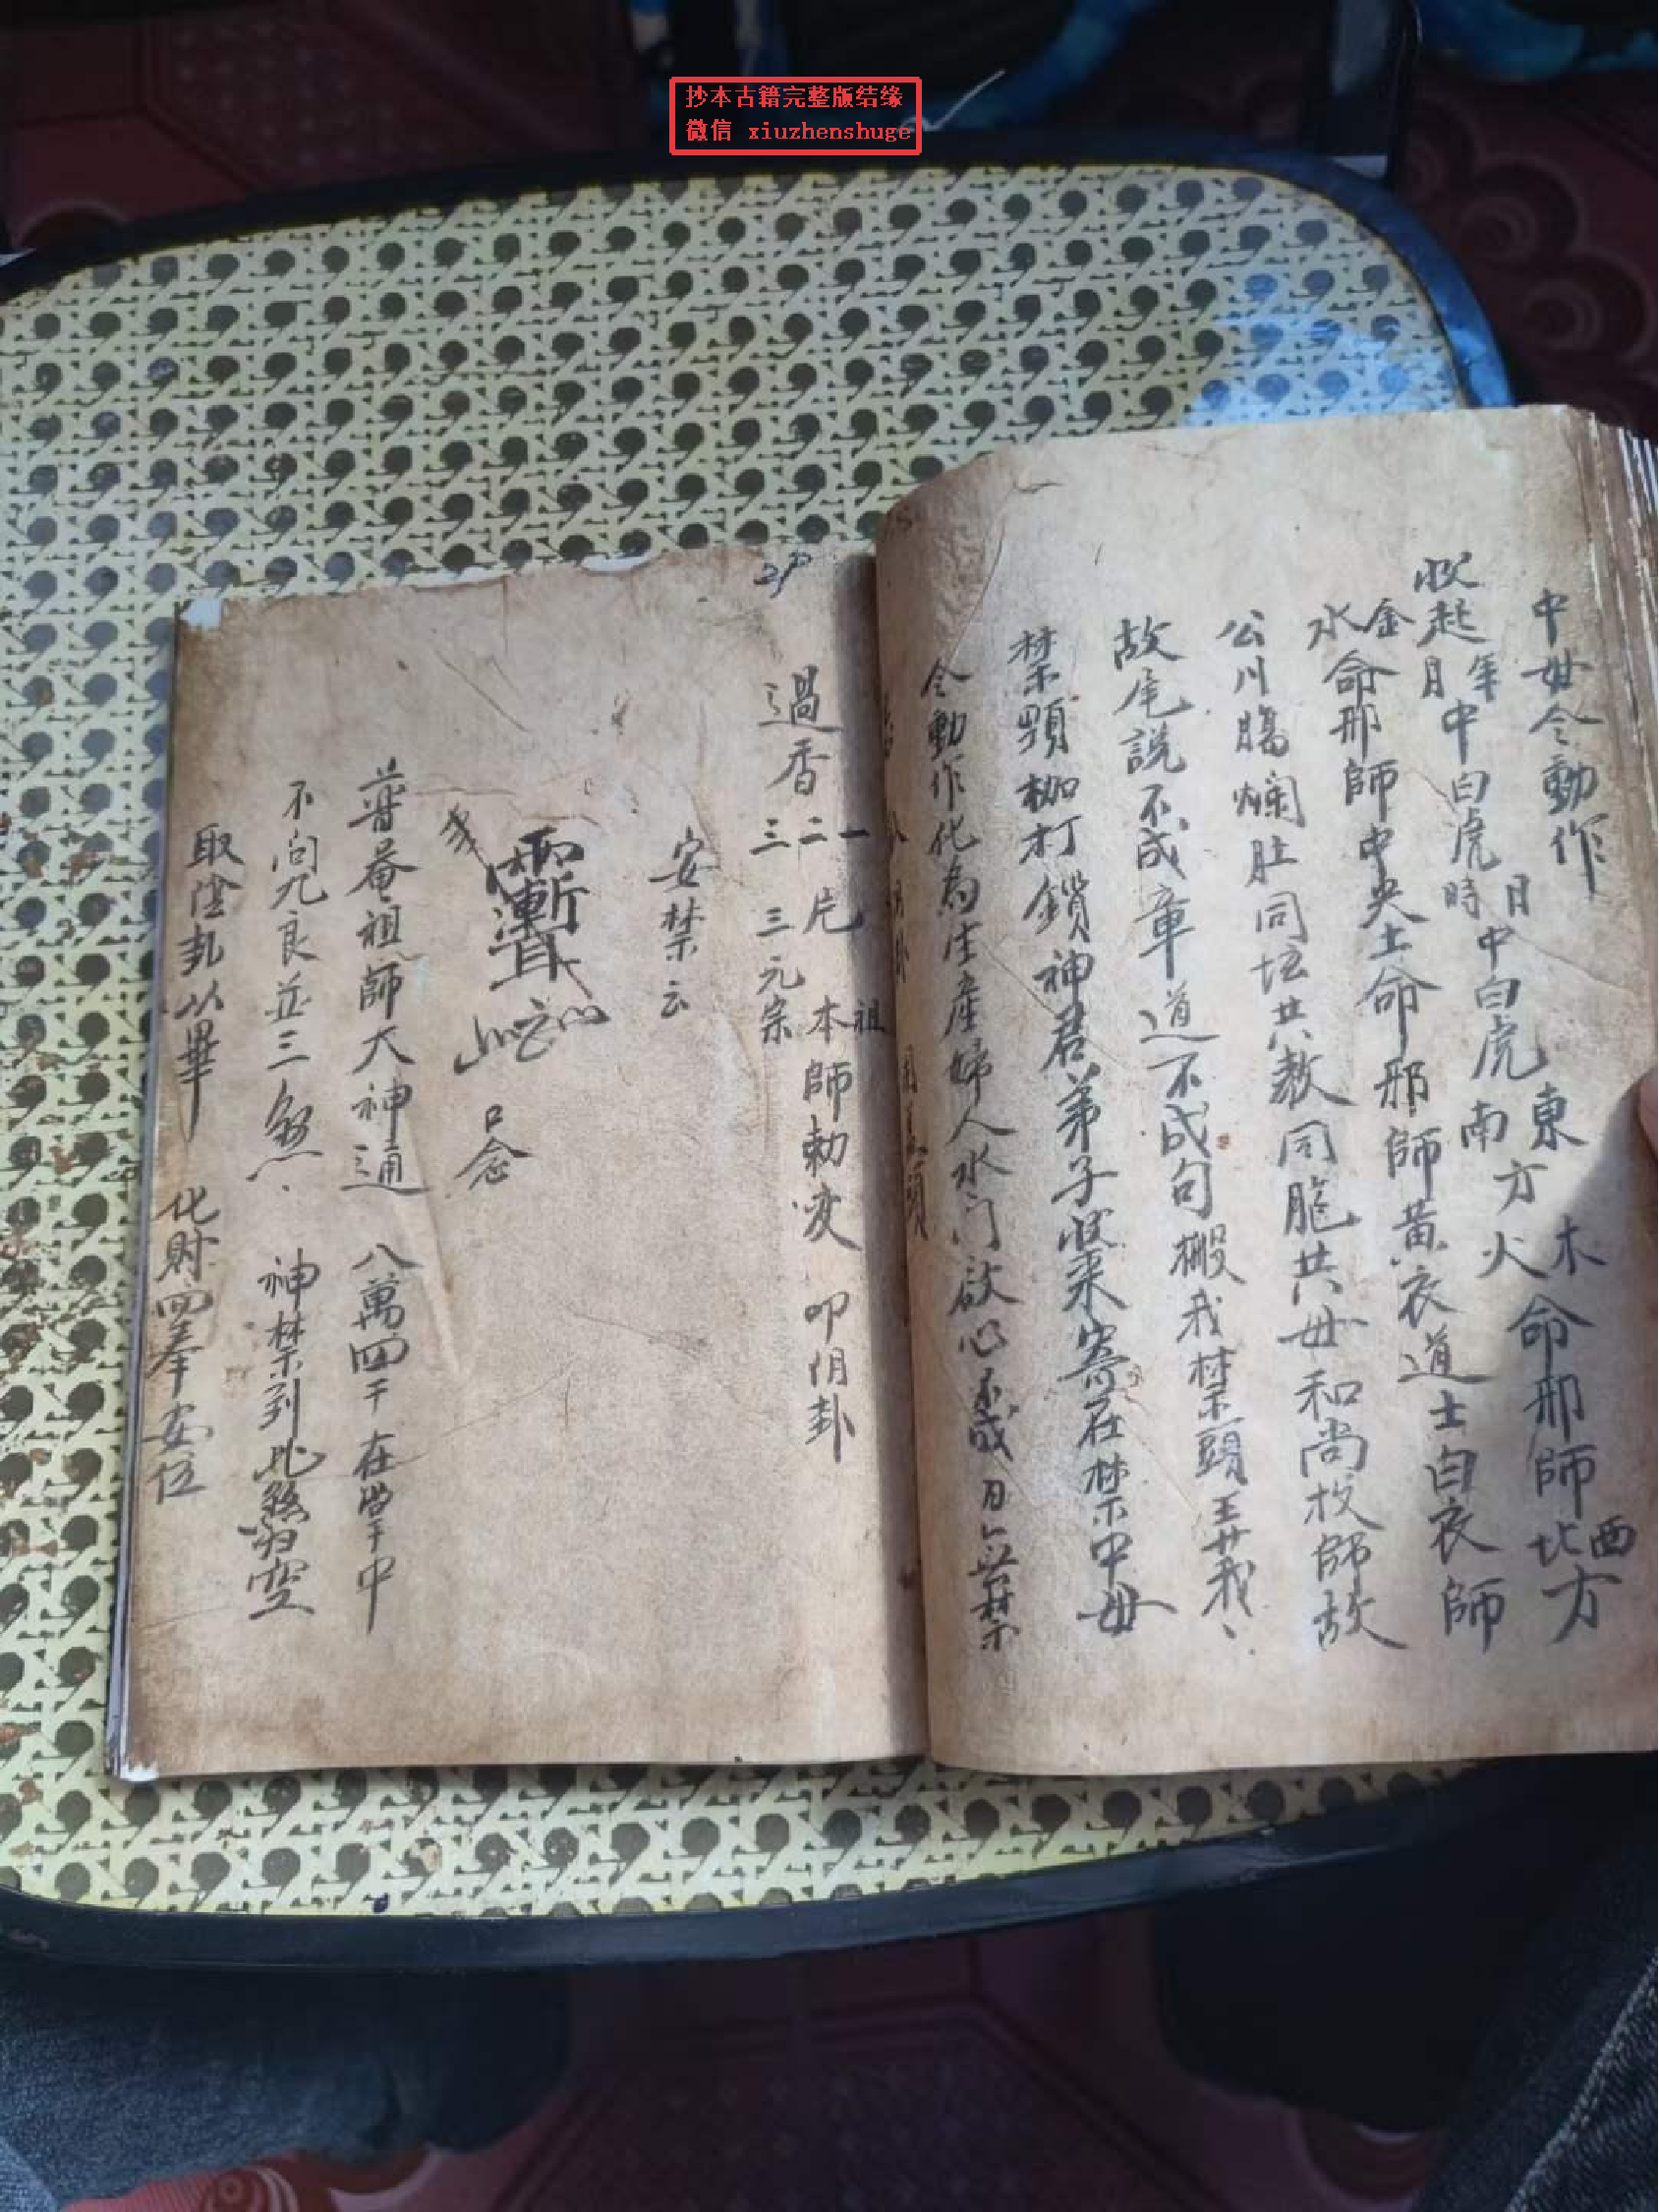 抄本古籍完整版结缘
微信 xiuzhenshuge
中毋令動作
收起年月中白虎時月中白虎東南方木火命邪師西北方
金水命邪師中央土命邪師黃衣道士白衣師
公川腸爛肚同坛共教同胞共母和尚校師故
故尾説不成章道不成句搬我禁頭王弄我
禁頸枷打鎖神君弟子收来寄在禁中毋
令動作化為生産婦人水门欲心不成日無禁
過香一二三片三元宗祖本師勅变叩阴卦
安禁云
口念
普菴祖師大神通八萬四千在掌中
不问九良並三煞神禁到此归空
取陰卦以畢化財四奉安位